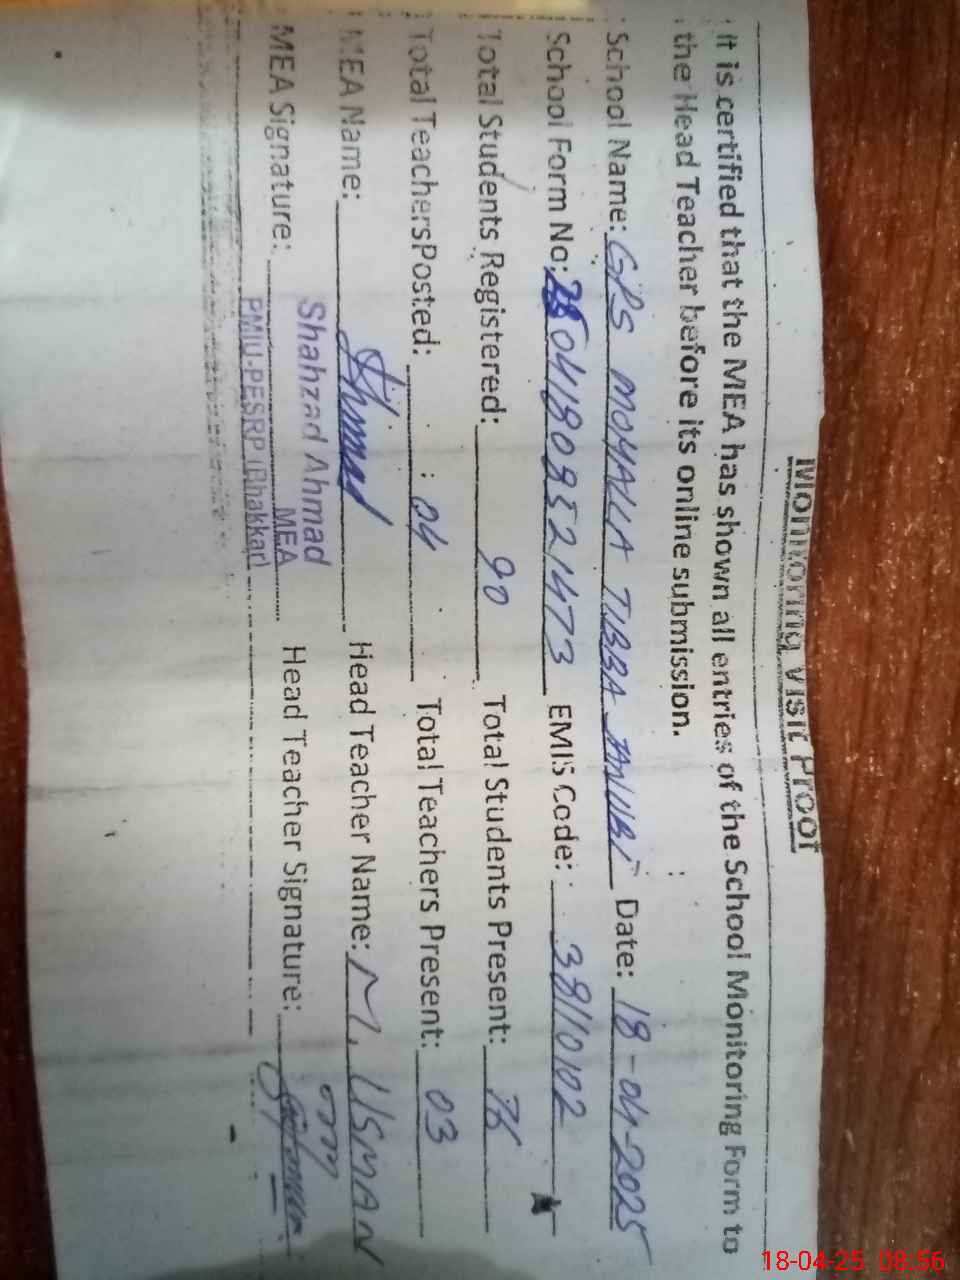 Monitoring Visit Proof
It is certified that the MEA has shown all entries of the School Monitoring Form to
the Head Teacher before its online submission.
School Name: GPS MOHALLA TIBBA JANUBI Date: 18-04-2025
School Form No: 25041809521473 EMIS Code: 38110102
Total Students Registered: 90 Total Students Present: 76
Total Teachers Posted: 04 Total Teachers Present: 03
MEA Name: Ahmad Head Teacher Name: M. USMAN
MEA Signature: Shahzad Ahmad Head Teacher Signature:
MEA
PMIU-PESRP (Bhakkar)
18-04-25 08:56